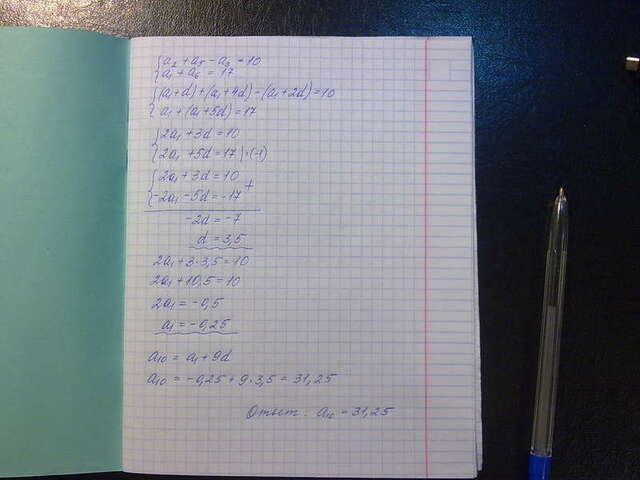 a₂ + a₅ − a₃ = 10
a₁ + a₆ = 17
(a₁+d) + (a₁+4d) − (a₁+2d) = 10
a₁ + (a₁+5d) = 17
2a₁ + 3d = 10
2a₁ + 5d = 17 |·(-1)
2a₁ + 3d = 10
-2a₁ − 5d = -17 +
-2d = -7
d = 3,5
2a₁ + 3·3,5 = 10
2a₁ + 10,5 = 10
2a₁ = -0,5
a₁ = -0,25
a₁₀ = a₁ + 9d
a₁₀ = -0,25 + 9·3,5 = 31,25
Ответ: a₁₀ = 31,25